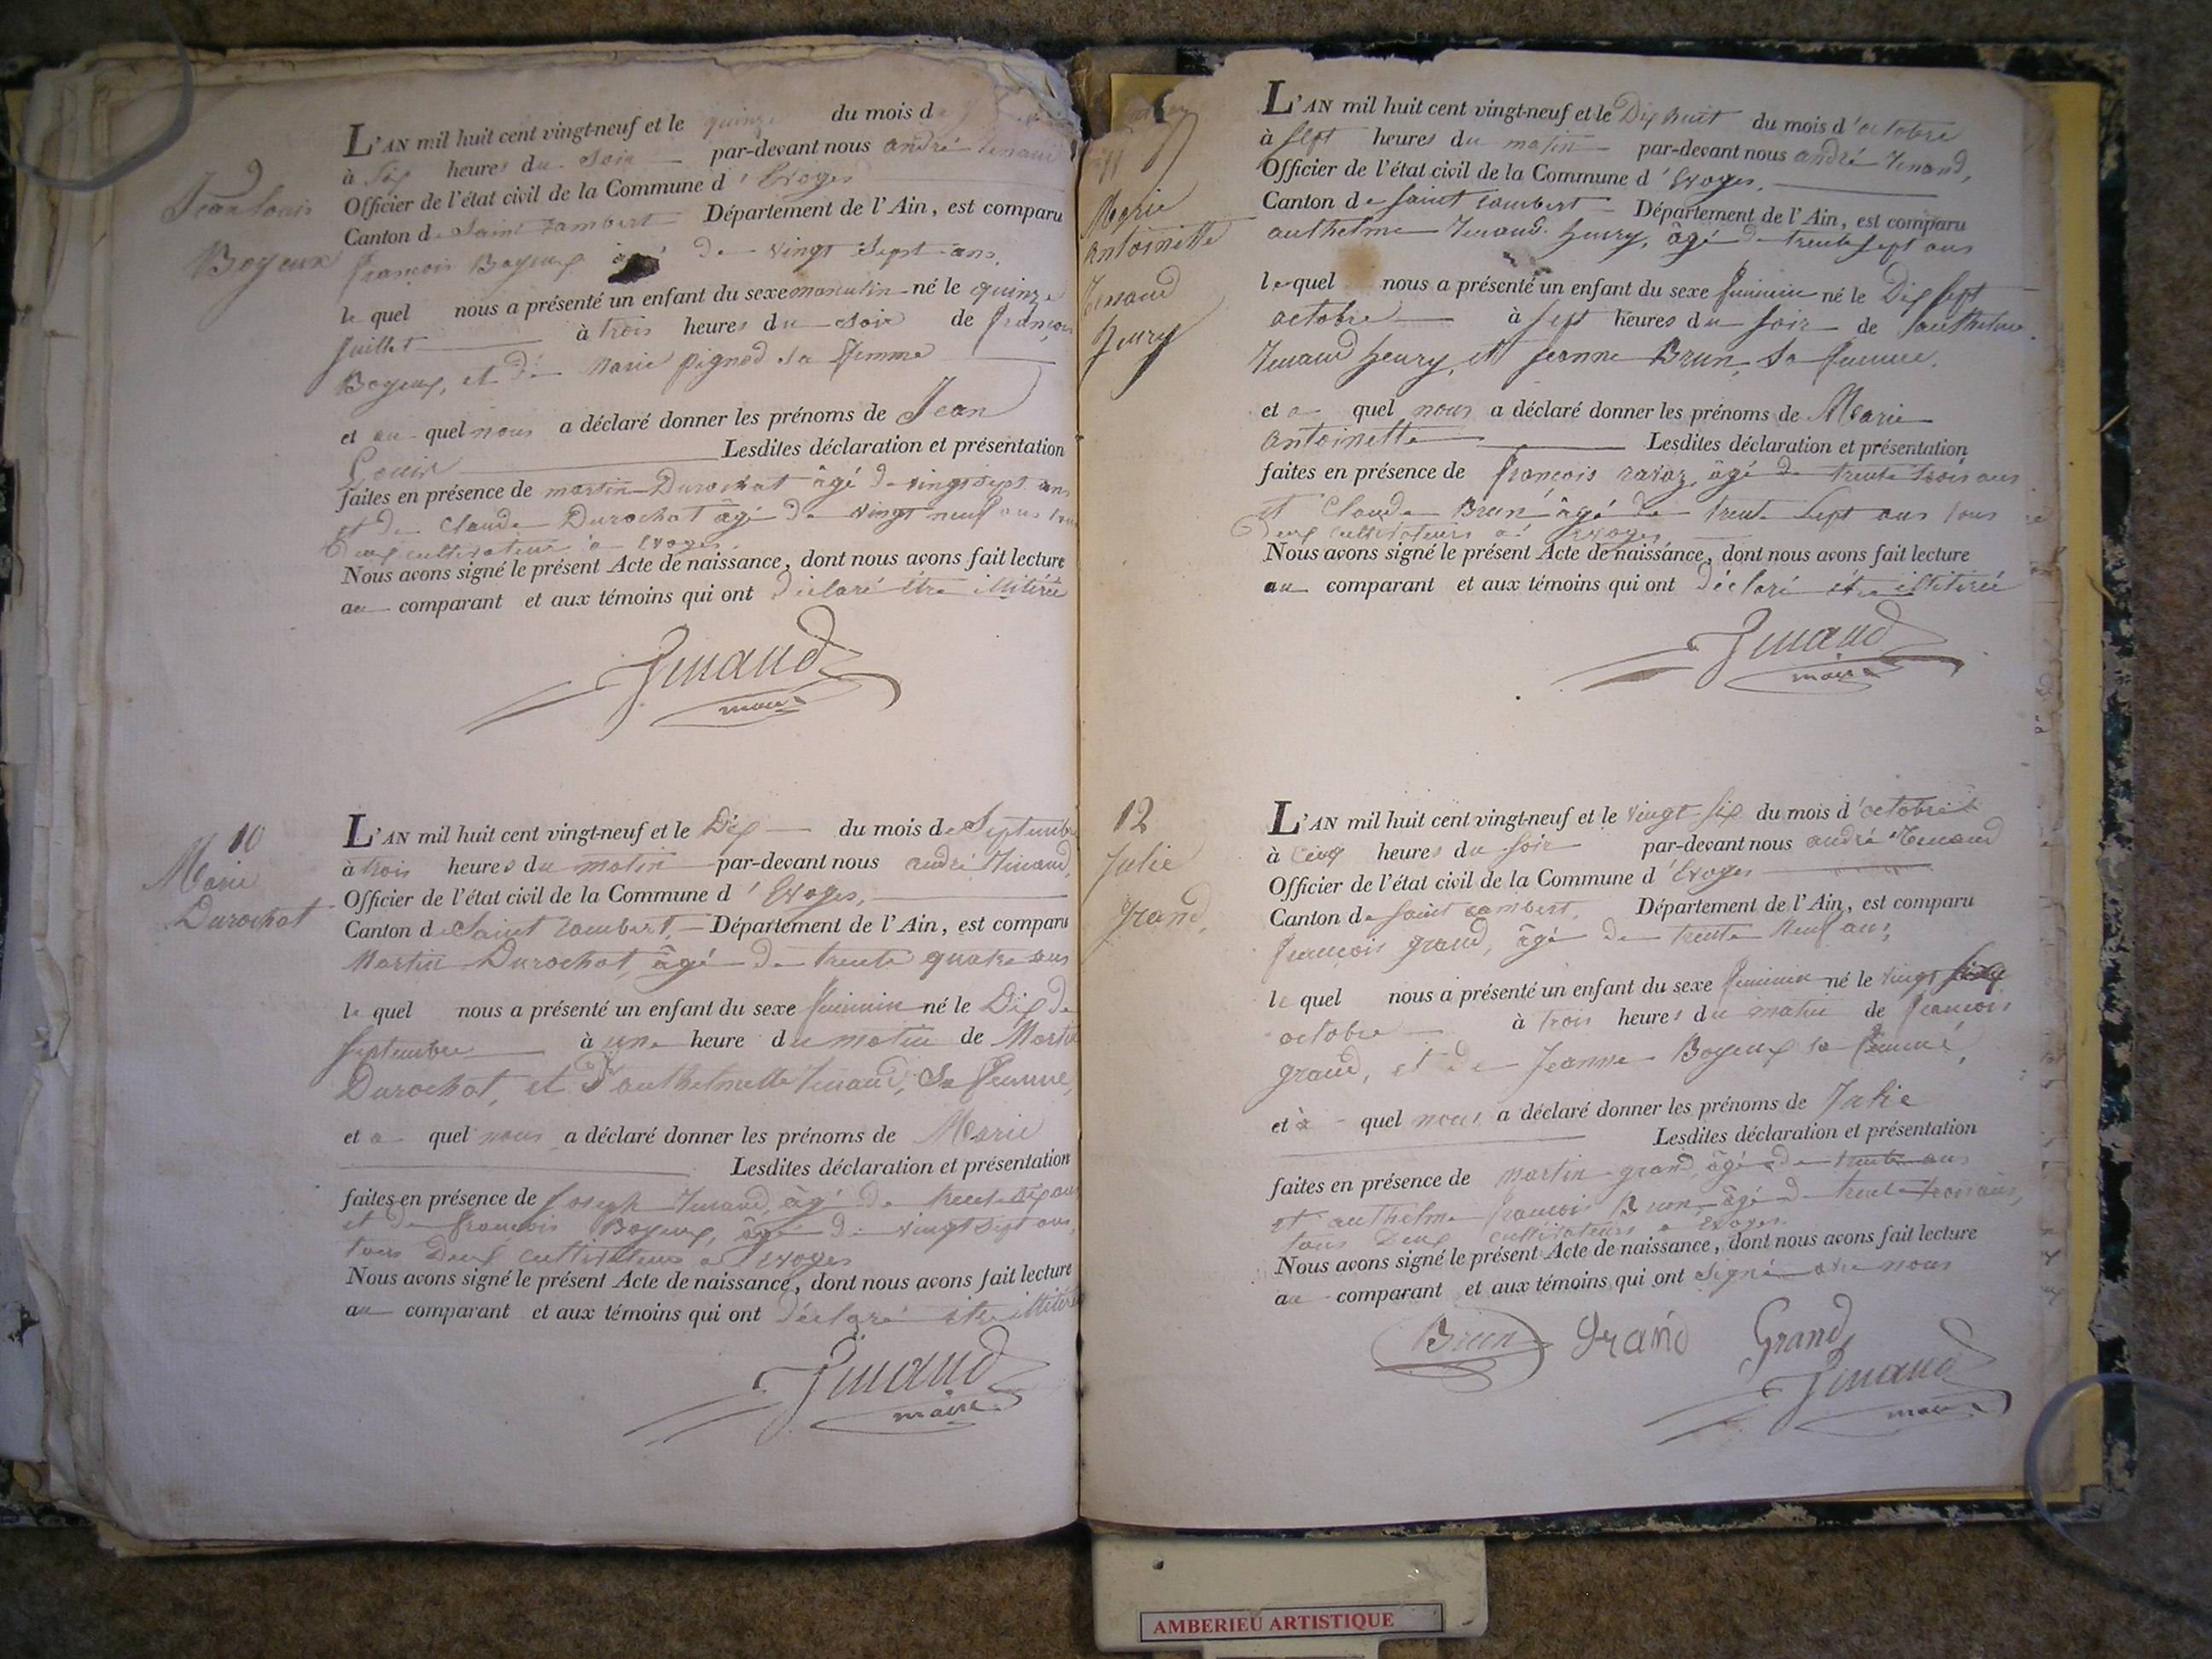 9
Jean Louis
Boyeux
L'AN mil huit cent vingt-neuf et le quinze du mois d
à six heures du soir par-devant nous andré Tenand
Officier de l'état civil de la Commune d'Evoges
Canton de Saint rambert Département de l'Ain, est comparu
françois Boyeux âgé de vingt sept ans,
le quel nous a présenté un enfant du sexe masculin né le quinze
juillet à trois heures du soir de françois
Boyeux, et de Marie pignod sa femme
et au quel nous a déclaré donner les prénoms de Jean
Louis Lesdites déclaration et présentation
faites en présence de martin Durochat âgé de vingt sept ans
et de Claude Durochat âgé de vingt neuf ans tous
deux cultivateur à Evoges.
Nous avons signé le présent Acte de naissance, dont nous avons fait lecture
au comparant et aux témoins qui ont déclaré être illitéré
Tenand
maire
10
Marie
Durochat
L'AN mil huit cent vingt-neuf et le Dix du mois de Septembre
à trois heures du matin par-devant nous andré Tenand,
Officier de l'état civil de la Commune d'Evoges,
Canton de Saint rambert, Département de l'Ain, est comparu
Martin Durochat, âgé de trente quatre ans
le quel nous a présenté un enfant du sexe feminin né le Dix de
Septembre à une heure du matin de Martin
Durochat, et d'anthelmette Tenand, sa femme,
et a quel nous a déclaré donner les prénoms de Marie
Lesdites déclaration et présentation
faites en présence de joseph Tenand, âgé de trente six ans
et de françois Boyeux, âgé de vingt sept ans,
tous deux cultivateurs a Evoges
Nous avons signé le présent Acte de naissance, dont nous avons fait lecture
au comparant et aux témoins qui ont déclaré être illitéré
Tenand
maire
11
Marie
antoinette
Tenand
henry
L'AN mil huit cent vingt-neuf et le Dix huit du mois d'octobre
à sept heures du matin par-devant nous andré Tenand,
Officier de l'état civil de la Commune d'Evoges,
Canton de saint rambert Département de l'Ain, est comparu
anthelme Tenand henry, âgé de trente sept ans
le quel nous a présenté un enfant du sexe feminin né le Dix sept
octobre à sept heures du soir de anthelme
Tenand henry, et jeanne Brun, sa femme.
et a quel nous a déclaré donner les prénoms de Marie
antoinette Lesdites déclaration et présentation
faites en présence de françois ravoz, âgé de trente trois ans
et Claude Brun âgé de trente sept ans tous
deux cultivateurs à Evoges
Nous avons signé le présent Acte de naissance, dont nous avons fait lecture
au comparant et aux témoins qui ont déclaré être illitéré
Tenand
maire
12
Julie
grand,
L'AN mil huit cent vingt-neuf et le vingt six du mois d'octobre
à cinq heures du soir par-devant nous andré Tenand
Officier de l'état civil de la Commune d'Evoges
Canton de saint rambert, Département de l'Ain, est comparu
françois grand, âgé de trente neuf ans,
le quel nous a présenté un enfant du sexe feminin né le vingt six
octobre à trois heures du matin de françois
grand, et de Jeanne Boyeux sa femme,
et à quel nous a déclaré donner les prénoms de Julie
Lesdites déclaration et présentation
faites en présence de martin grand, âgé de trente ans
et anthelme françois Brun, âgé de trente trois ans,
tous deux cultivateurs a Evoges
Nous avons signé le présent Acte de naissance, dont nous avons fait lecture
au comparant et aux témoins qui ont signé avec nous
Brun Grand Grand
Tenand
maire
AMBERIEU ARTISTIQUE